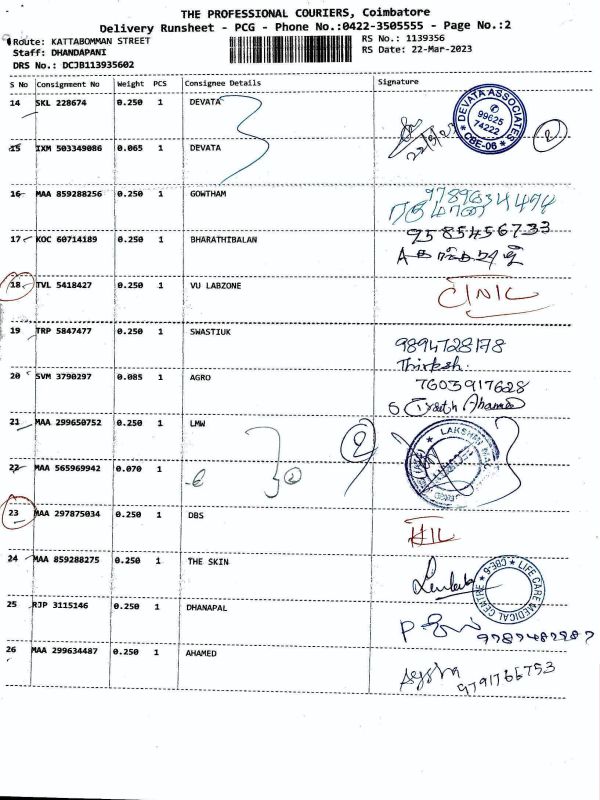 THE PROFESSIONAL COURIERS, Coimbatore
Delivery Runsheet - PCG - Phone No.:0422-3505555 - Page No.:2
Route: KATTABOMMAN STREET
RS No.: 1139356
Staff: DHANDAPANI
RS Date: 22-Mar-2023
DRS No.: DCJB113935602
S No Consignment No Weight PCS Consignee Details Signature
14 SKL 228674 0.250 1 DEVATA
DEVATA ASSOCIATES
99625
74222
CBE-06
2
15 IXM 503349086 0.065 1 DEVATA
16 MAA 859288256 0.250 1 GOWTHAM
9789634494
17 KOC 60714189 0.250 1 BHARATHIBALAN
9585456733
18 TVL 5418427 0.250 1 VU LABZONE
19 TRP 5847477 0.250 1 SWASTIUK
9894728178
Thirksh.
20 SVM 3790297 0.085 1 AGRO
7603917628
21 MAA 299650752 0.250 1 LMW
2
22 MAA 565969942 0.070 1
2
23 MAA 297875034 0.250 1 DBS
24 MAA 859288275 0.250 1 THE SKIN
LIFE CARE MEDICAL CENTRE CBE-6
25 RJP 3115146 0.250 1 DHANAPAL
26 MAA 299634487 0.250 1 AHAMED
Aysha
9791766753